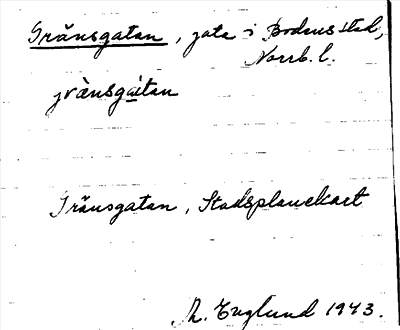 Gränsgatan, gata i Bodens stad,
Norrb. l.
grä̀nsgàtan
Gränsgatan, Stadsplanekart
M. Englund 1943.